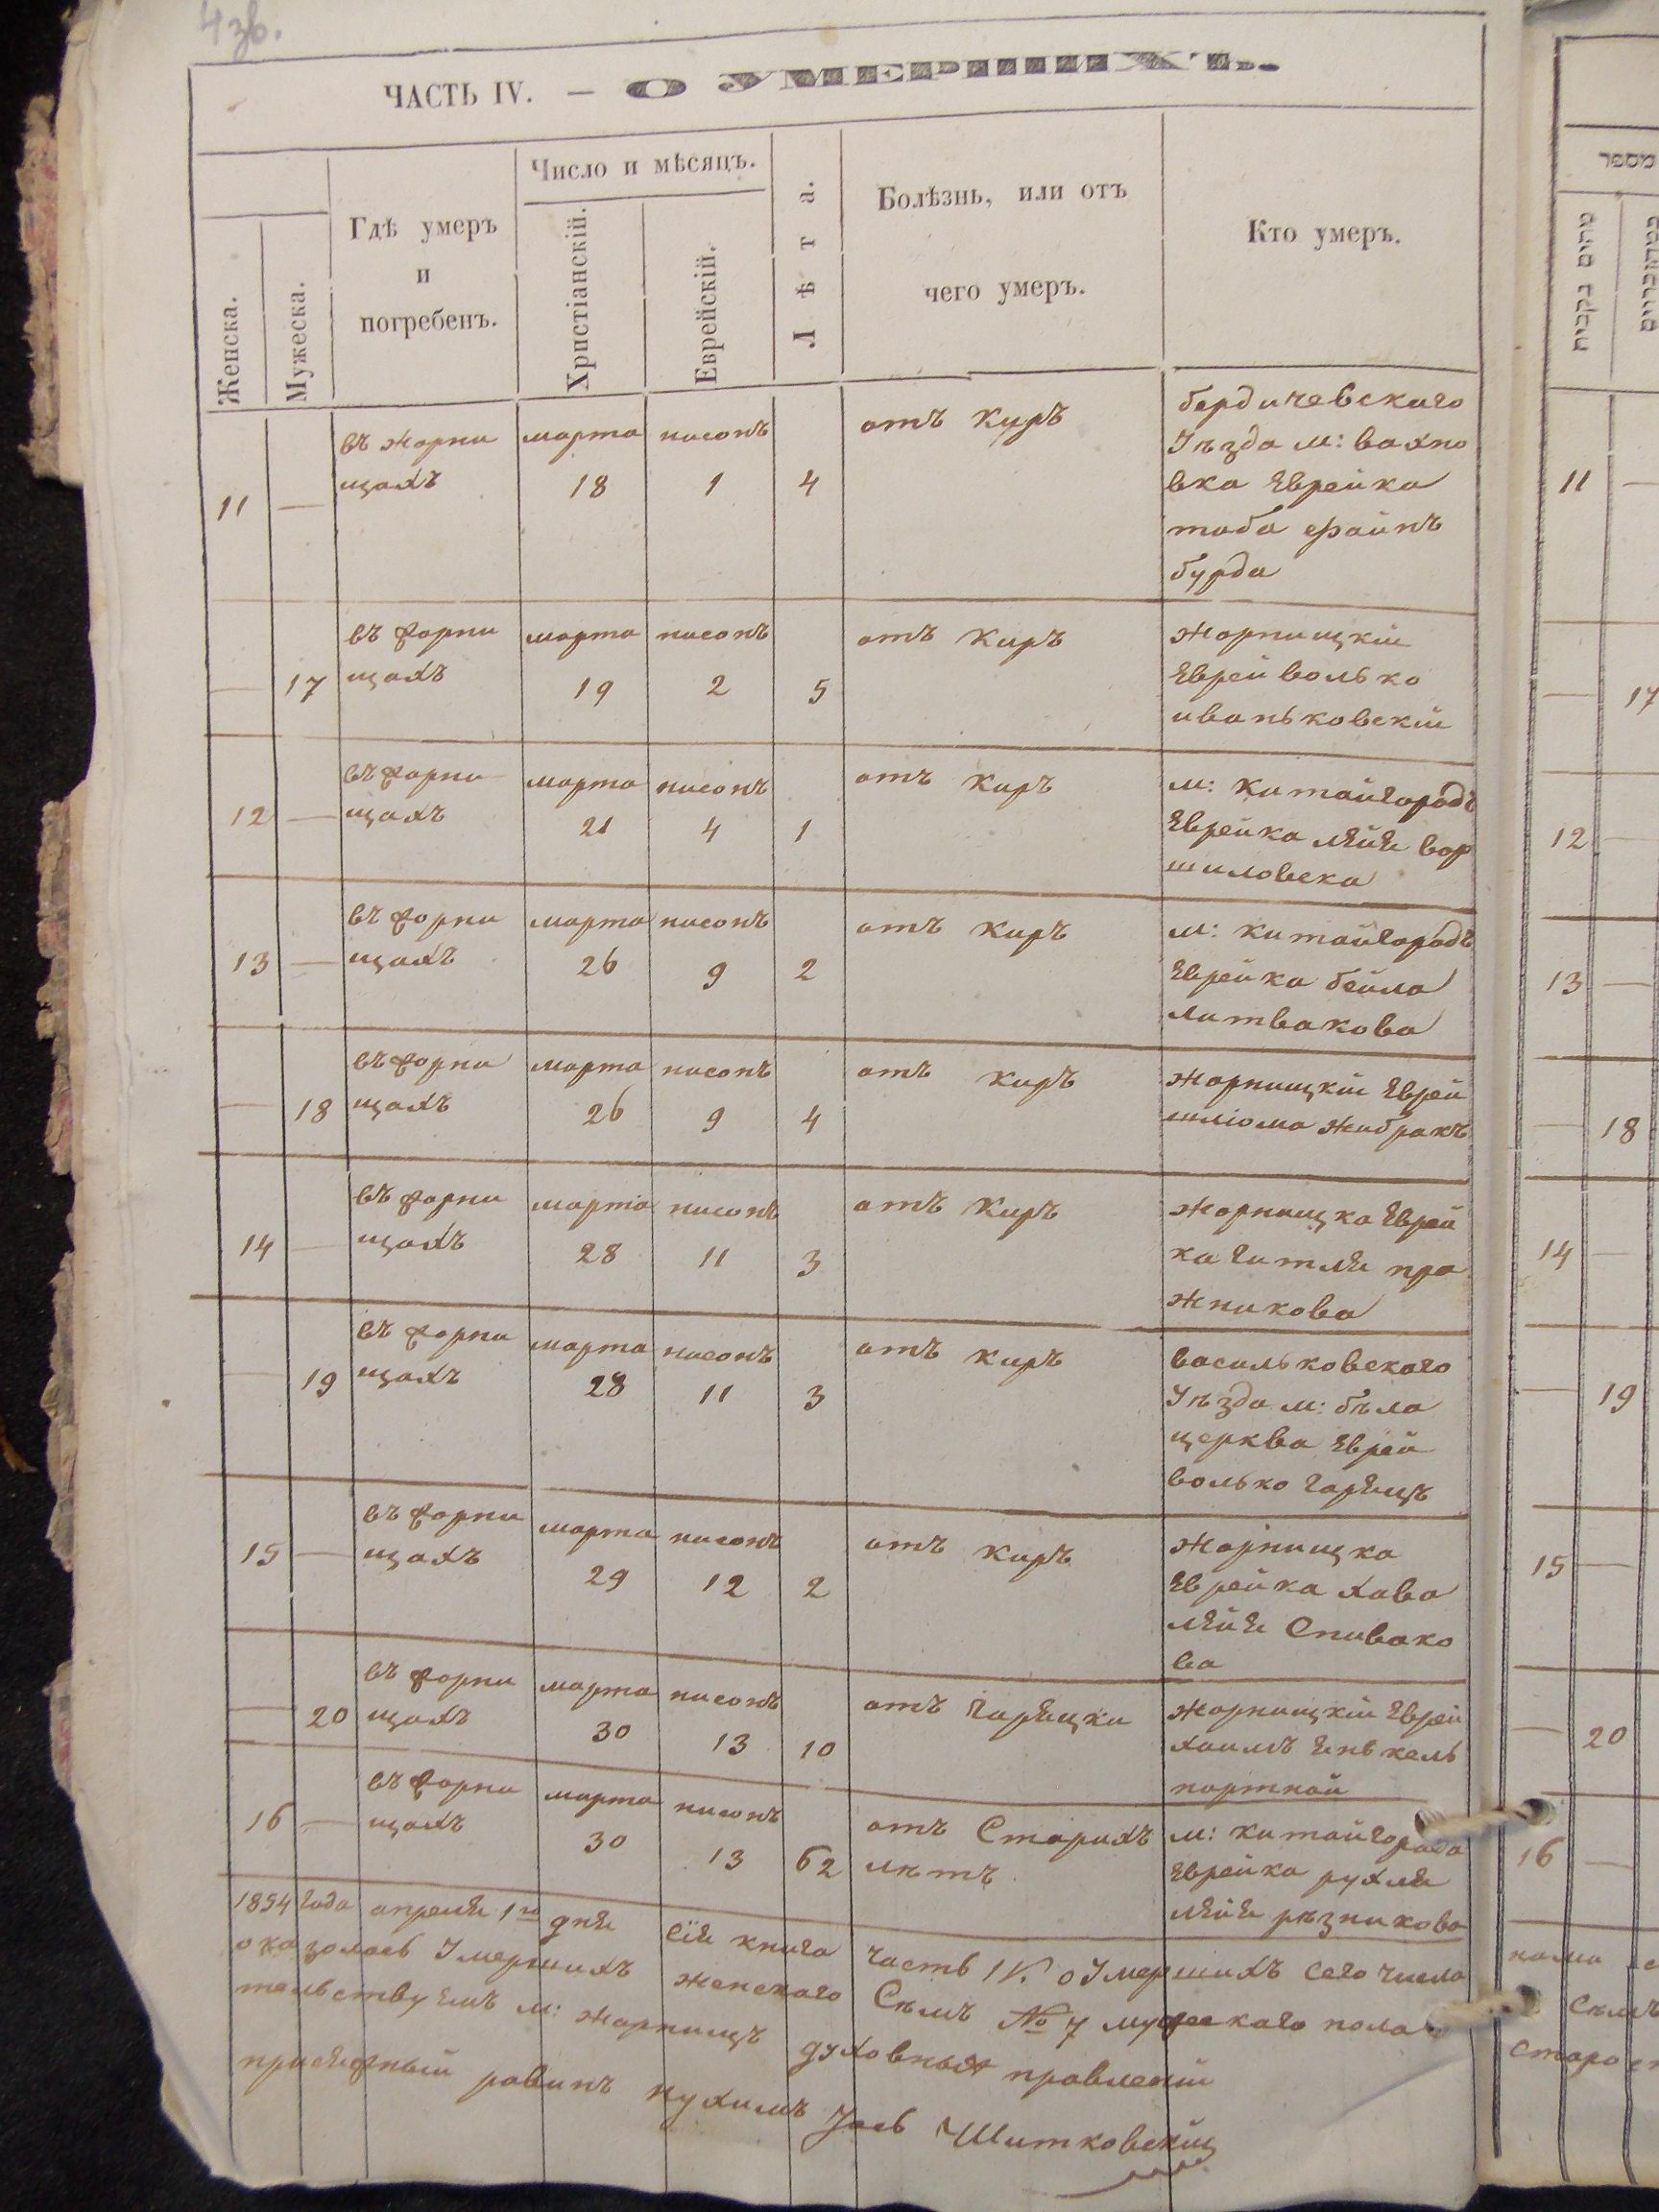 43б.
ЧАСТЬ IV. — О УМЕРШИХЪ.
Женска.
Мужеска.
Гдѣ умеръ
и
погребенъ.
Число и мѣсяцъ.
Христіанскій.
Еврейскій.
Лѣта.
Болѣзнь, или отъ
чего умеръ.
Кто умеръ.
11 — въ жорни
щахъ
марта
18
нисонъ
1
4
отъ Киръ
бердичевского
Уѣзда м: вахно
вка Еврейка
тоба файнъ
бурда
— 17 въ жорни
щахъ
марта
19
нисонъ
2
5
отъ Киръ
жорнищкiй
Еврей волько
иваньковскiй
12 — въ жорни
щахъ
марта
21
нисонъ
4
1
отъ Киръ
м: Китайгородъ
Еврейка лѣйя вор
шиловска
13 — въ жорни
щахъ
марта
26
нисонъ
9
2
отъ Киръ
м: китайгородъ
Еврейка бейла
литвакова
— 18 въ жорни
щахъ
марта
26
нисонъ
9
4
отъ киръ
жорнищкiй Еврей
шліома жибракъ
14 — въ жорни
щахъ
марта
28
нисонъ
11
3
отъ Киръ
жорнищка Еврей
ка гитля пра
жникова
— 19 въ жорни
щахъ
марта
28
нисонъ
11
3
отъ киръ
васильковского
Уѣзда м: бѣла
церква Еврей
волько
15 — въ жорни
щахъ
марта
29
нисонъ
12
2
отъ киръ
жорнищка
Еврейка хава
лѣйя Спивако
ва
— 20 въ жорни
щахъ
марта
30
нисонъ
13
10
отъ горячки
жорнищкiй Еврей
хаимъ янькель
портной
16 — въ жорни
щахъ
марта
30
нисонъ
13
62
отъ Старихъ
лѣтъ
м: китайгорода
Еврейка рухля
лѣйя рѣзникова
1854 года апреля 1го дня сiя книга часть IV. о Умершихъ сего числа
оказолось Умершихъ женского Сѣмъ № 7 мужеского пола
тельствуемъ м: жорнищъ духовныя правленiй
присяжный равинъ нухимъ Шитковскiй
מספר
11 —
— 17
12 —
13 —
— 18
14 —
— 19
15 —
— 20
16 —